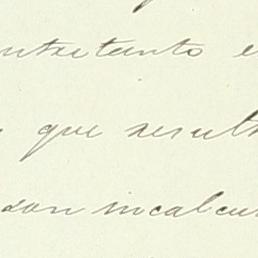 entretanto e
que result
son incalcu